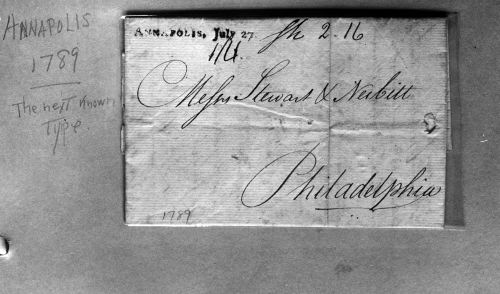 ANNAPOLIS
1789
The next Known
Type.
ANNAPOLIS, July 27.
Sh 2..16
Messrs Stewart & Nesbitt
Philadelphia
1789